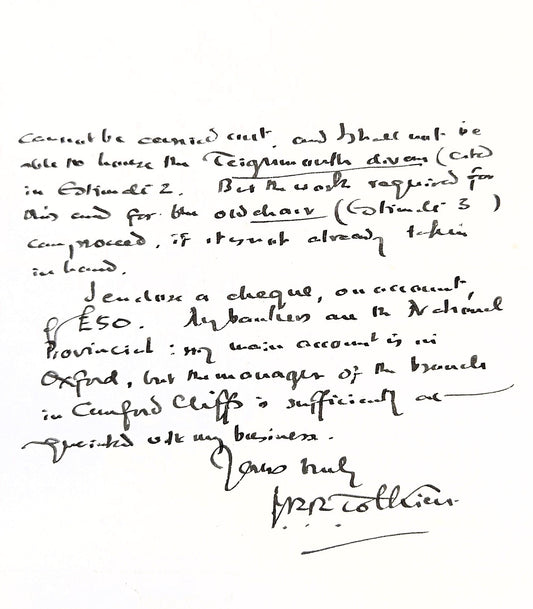 cannot be carried out, and I shall not be
able to house the Teignmouth divan (cited
in Estimate 2. But the work required for
this and for the old chair (Estimate 3 )
can proceed, if it is not already taken
in hand.
I enclose a cheque, on account,
of £50. My bankers are the National
Provincial: my main account is in
Oxford, but the manager of the branch
in Canford Cliffs is sufficiently ac-
quainted with my business.
Yours truly
J.R.R. Tolkien.